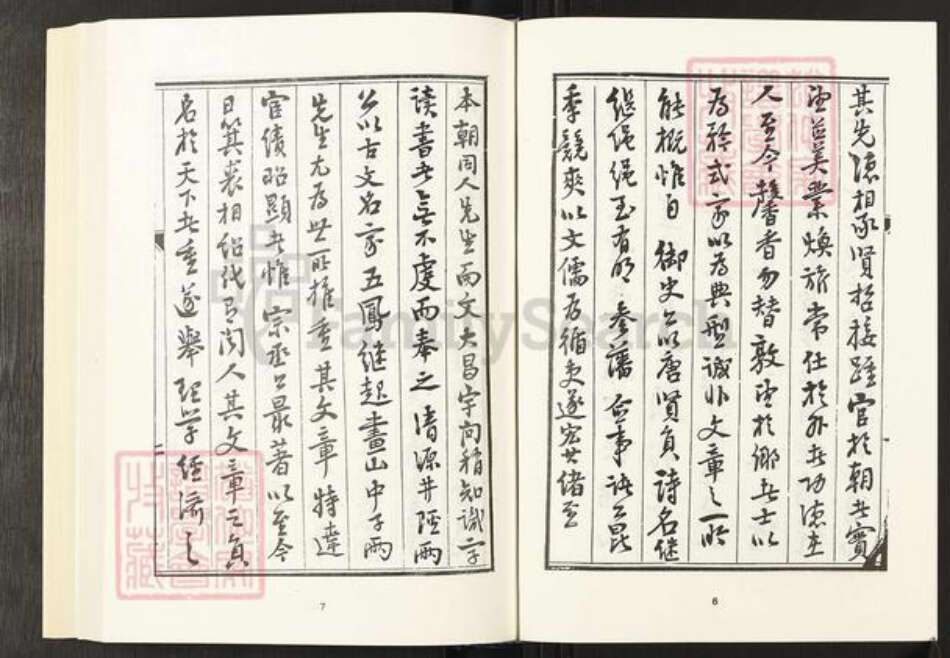 其先德相承賢哲接踵官於朝者實
望益美業煥旂常仕於外者功德在
人至今馨香勿替敦望於鄉者士以
為矜式家以為典型誠非文章之一所
能概惟自 御史公以唐賢負詩名繼
繼繩繩至有明 參藩 僉事諸公昆
季競爽以文儒為循吏遂宏其緒至
6
本朝同人先生而文大昌宇向稍知識字
讀書者無不虔而奉之清源井陘兩
公以古文名家五鳳繼起畫山中子兩
先生尤為世所推重其文章特達
宦績昭顯者惟宗丞公最著以至今
日箕裘相紹代有聞人其文章之負
名於天下者重遂舉理學經濟之
7
FamilySearch